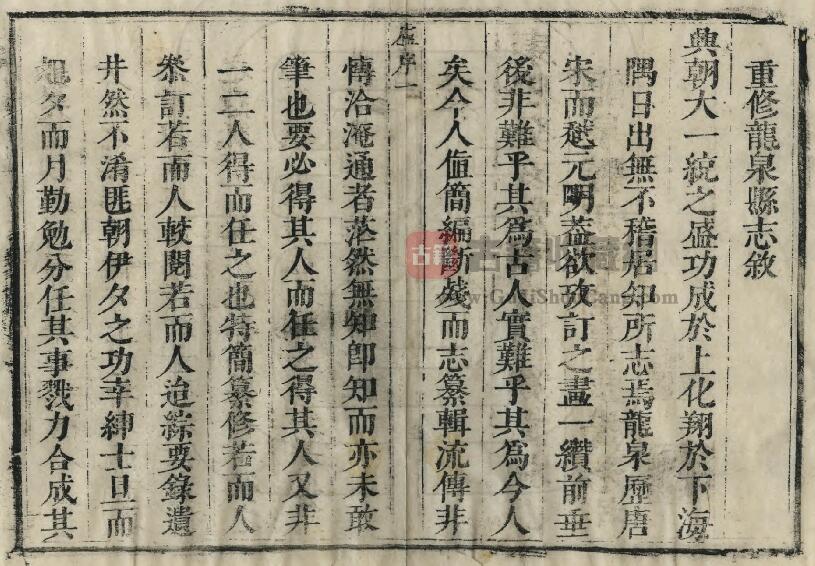 重修龍泉縣志敘
興朝大一統之盛功成於上化翔於下海
隅日出無不稽居知所志焉龍泉歷唐
宋而趨元明葢欲攷訂之畫一纘前垂
後非難乎其為古人實難乎其為今人
矣今人値簡編斷殘而志纂輯流傳非
虛序一
博洽淹通者茫然無知卽知而亦未敢
筆也要必得其人而任之得其人又非
一二人得而任之也特簡纂修若而人
叅訂若而人較閱若而人迨綜要錄遺
井然不淆匪朝伊夕之功幸紳士旦而
夕而月勤勉分任其事戮力合成其
古籍
古籍收藏
www.GuJiShuCang.com